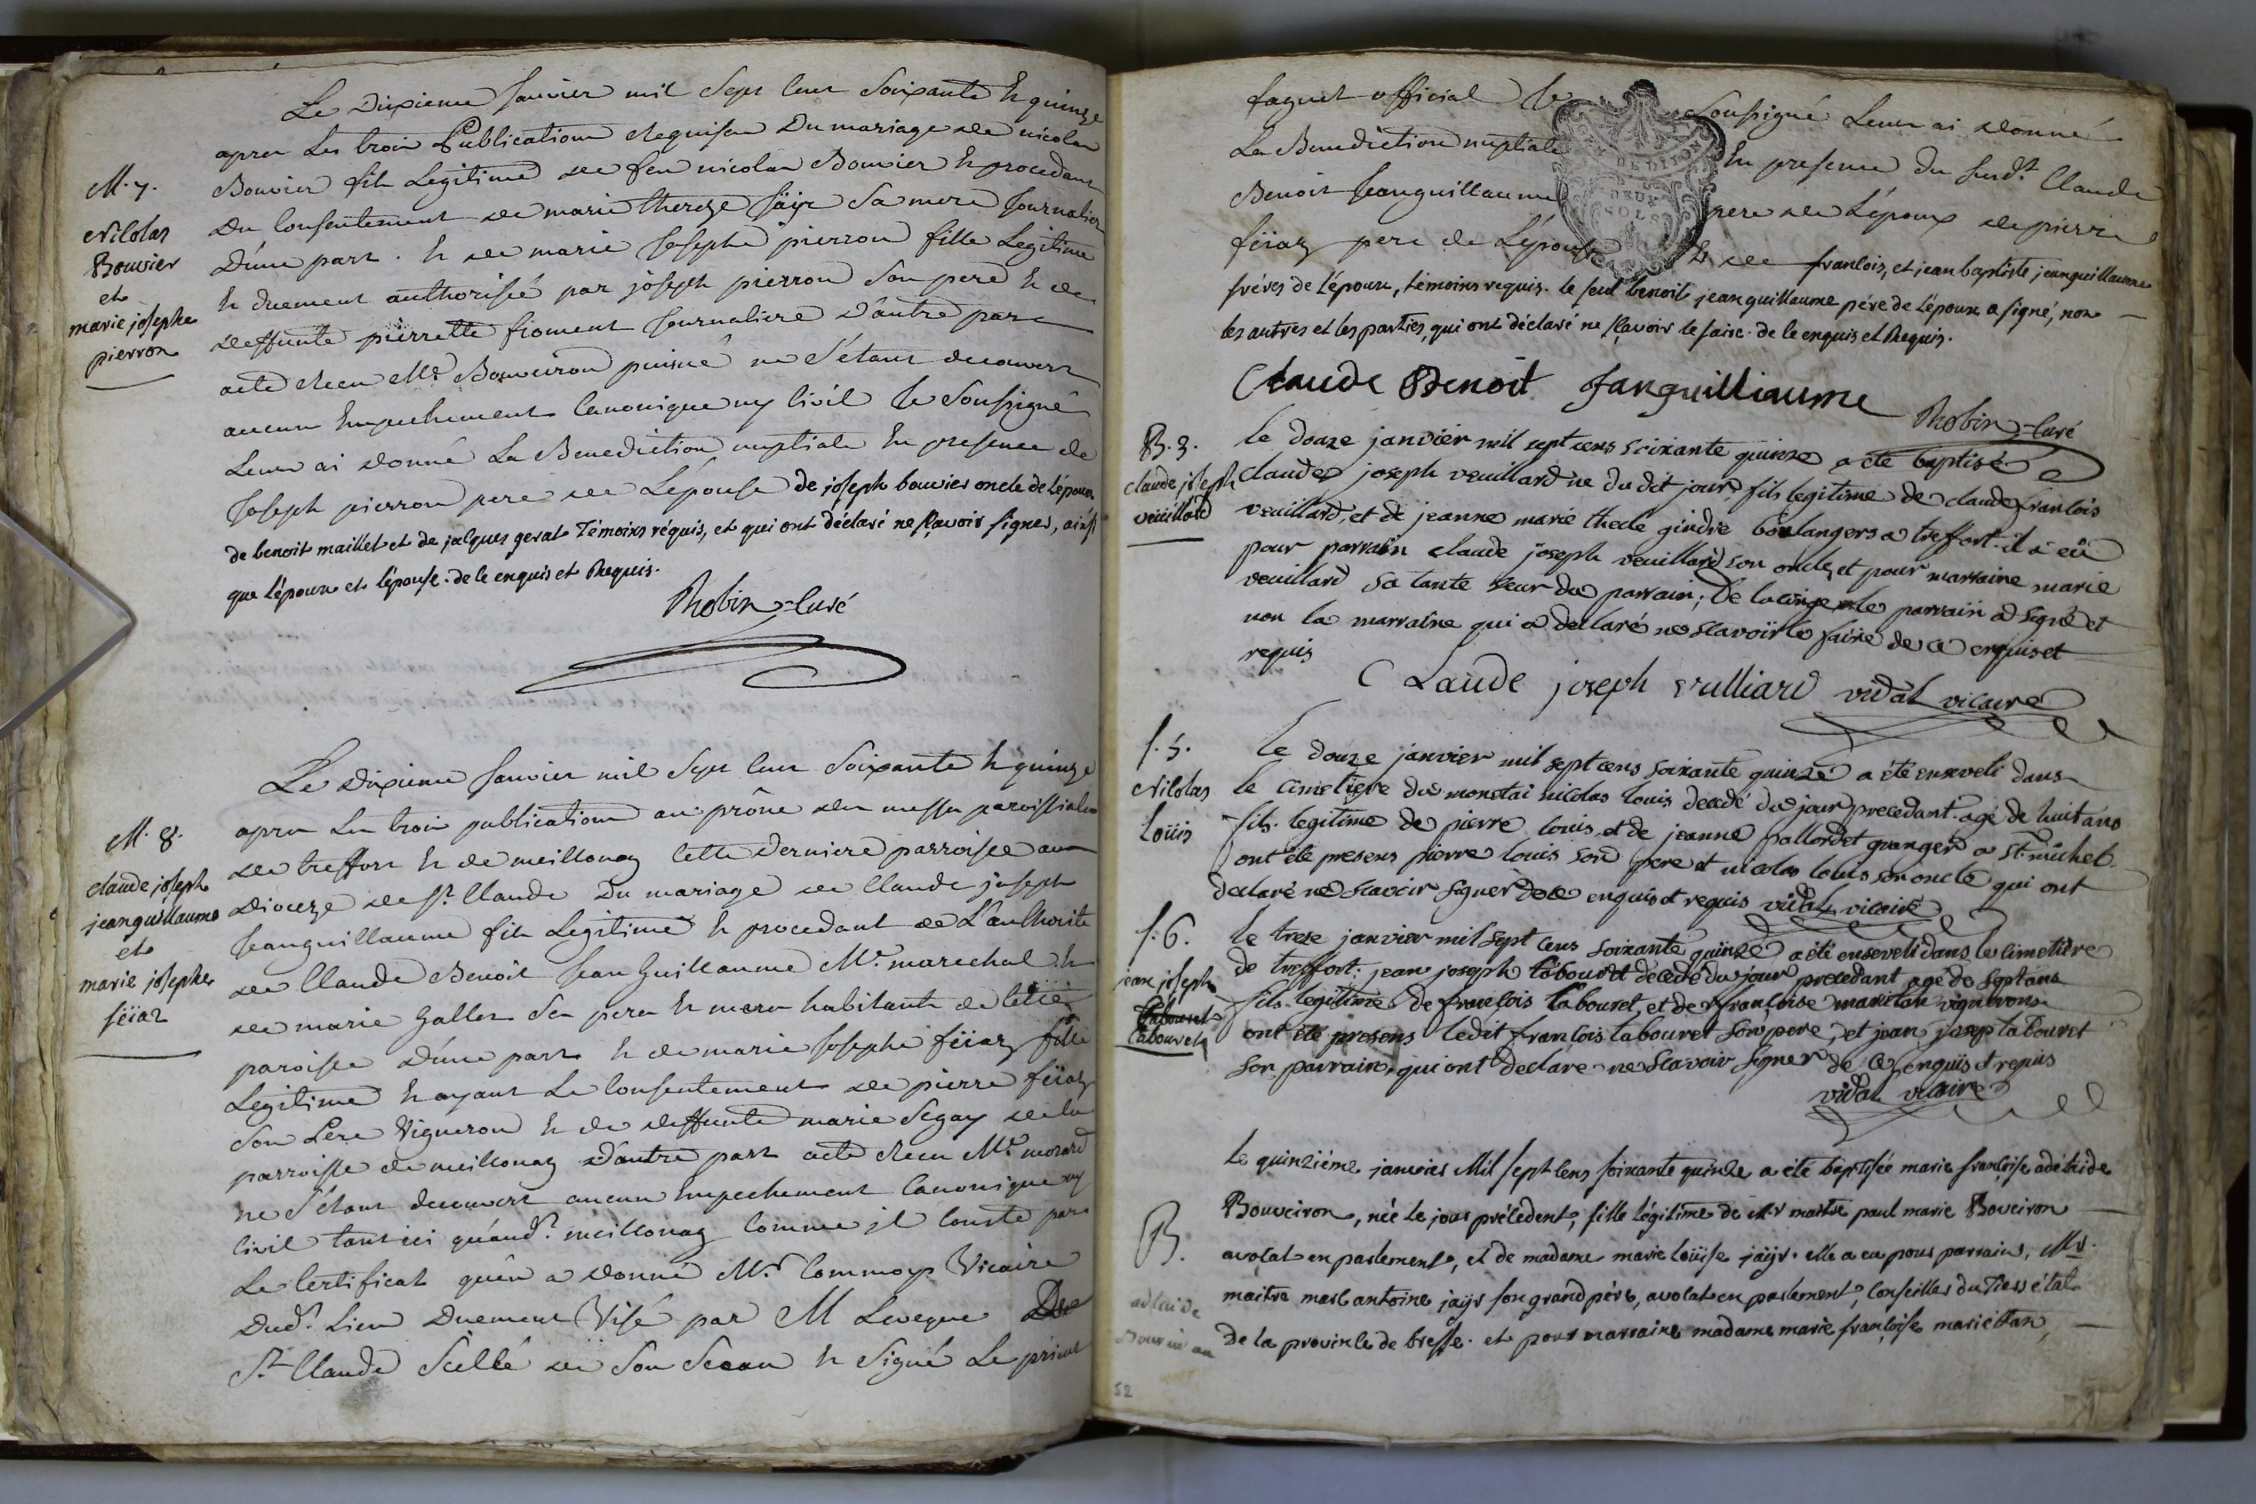 Le Dixieme Janvier mil Sept Cent Soixante & quinze
apres Les trois Publications Requises Du mariage de nicolas
M. 7.
Nicolas
Bouvier
et
marie josephe
pierron
Bouvier fils Legitime de feu nicolas Bouvier & procedant
Du Consentement de marie thereze Sa mere Journalier
D'une part. & de marie Josephe pierron fille Legitime
& duement authorisée par joseph pierron Son pere & de
deffunte pierrette froment Journaliere D'autre part
acte Receu Me. Bouveiron puisné ne S'étant decouvert
aucun Empechement Canonique ny Civil Je Soussigné
Leur ai donné La Benediction nuptiale En presence de
Joseph pierron pere de L'épouse de joseph bouvier oncle de L'époux
de benoit maillet et de jacques gerat Témoins réquis, et qui ont déclaré ne sçavoir signer, ainsi
que L'époux et L'épouse. de ce enquis et Requis.
Robin Curé
Le Dixieme Janvier mil Sept Cent Soixante & quinze
apres Les trois publications au prône des messes paroissiales
M. 8.
claude joseph
jeanguillaume
et
marie josephe
féïaz
de treffort & de meillonaz Cette Derniere parroisse au
Dioceze de St. Claude Du mariage de Claude joseph
Jeanguillaume fils Legitime & procedant de L'authorité
de Claude Benoit Jean Guillaume Me. marechal &
de marie Gallet Ses pere & mere habitants de Cette
paroisse D'une part & de marie Josephe féïaz fille
Legitime & ayant Le Consentement de pierre féïaz
Son Pere Vigneron & de deffunte marie Segay de la
parroisse de meillonaz D'autre part acte Receu Me. morard
ne S'étant decouvert aucun Empechement Canonique ny
Civil tant ici qu'aud.t meillonaz Comme jl Conste par
Le Certificat qu'en a donné Mr. Commoys Vicaire
Dud.t Lieu Duement Visé par M Leveque De
St. Claude Scellé de Son Sceau & Signé Le prieur
faguet official Je Soussigné Leur ai donné
La Benediction nuptiale En presence du susd.t Claude
Benoit Jeanguillaume pere de L'époux de pierre
féïaz pere de L'épouse & de francois, et jean baptiste jeanguillaume
fréres de L'époux, témoins requis. le seul benoit jeanguillaume pére de L'époux a signé, non
les autres et les parties, qui ont déclaré ne sçavoir le faire. de ce enquis et Requis.
EN DEDITION
DEUX
SOLS
Claude Benoit Janguilliaume
Robin Curé
B. 3.
claude joseph
veuillard
le douze janvier mil sept cens soixante quinze a été baptisé
claude joseph veuillard né du dit jour, fils legitime de claude francois
veuillard, et de jeanne marie thecle gindre boulangers a treffort. il a eû
pour parrain claude joseph veuillard son oncle, et pour marraine marie
veuillard sa tante seur du parrain; le parrain a signé et
non la marraine qui a declaré ne scavoir le faire de ce enquis et
requis
Claude joseph vulliard vidal vicaire
S. 5.
Nicolas
Loüis
le douze janvier mil sept cens soixante quinze a été enseveli dans
le cimetiere du monetai nicolas louis decedé du jour precedant. agé de huit ans
fils legitime de pierre louis et de jeanne pallordet granger a St. michel
ont été presens pierre louis son pere et nicolas louis son oncle qui ont
declaré ne scavoir signer de ce enquis et requis vidal vicaire
S. 6.
jean joseph
Labouret
Labouret
le treze janvier mil sept cens soixante quinze a été enseveli dans le cimetière
de treffort; jean joseph labouret décédé du jour precedant agé de sept ans
fils legitime de francois labouret, et de françoise vignerons
ont été presens ledit francois labouret son pere, et jean josep labouret
son parrain, qui ont declaré ne scavoir signer de ce enquis et requis
vidal vicaire
Le quinziéme janvier Mil sept cens soixante quinze a été baptisée marie françoise adélaide
B.
adelaide
Bouveiron
Bouveiron, née le jour précédent, fille légitime de Mr maitre paul marie Boveiron
avocat en parlement, et de madame marie loüise jaÿr. elle a eu pour parrain, Mr.
maitre marc antoine jaÿr son grand pére, avocat en parlement, conseiller du Tiers état
de la province de bresse. et pour marraine madame marie françoise mariéttan,
52